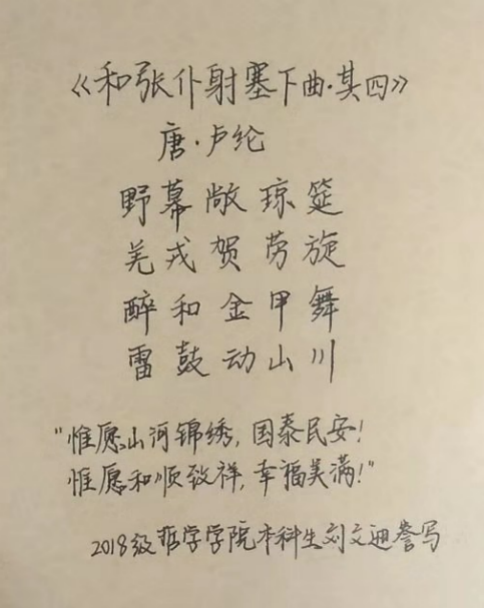 《和张仆射塞下曲·其四》
唐·卢纶
野幕敞琼筵
羌戎贺劳旋
醉和金甲舞
雷鼓动山川
"惟愿山河锦绣,国泰民安!
惟愿和顺致祥,幸福美满!"
2018级哲学学院本科生刘文迪誉写